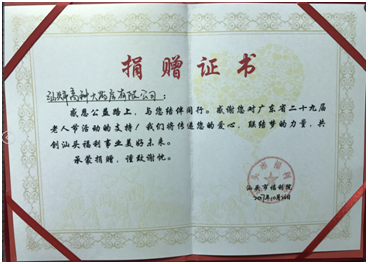 捐赠证书
汕头高新大药店有限公司：
感恩公益路上，与您结伴同行。感谢您对广东省二十九届
老人节活动的支持！我们将传递您的爱心，联结梦的力量，共
创汕头福利事业美好未来。
承蒙捐赠，谨致谢忱。
汕头市福利院
2017年10月28日